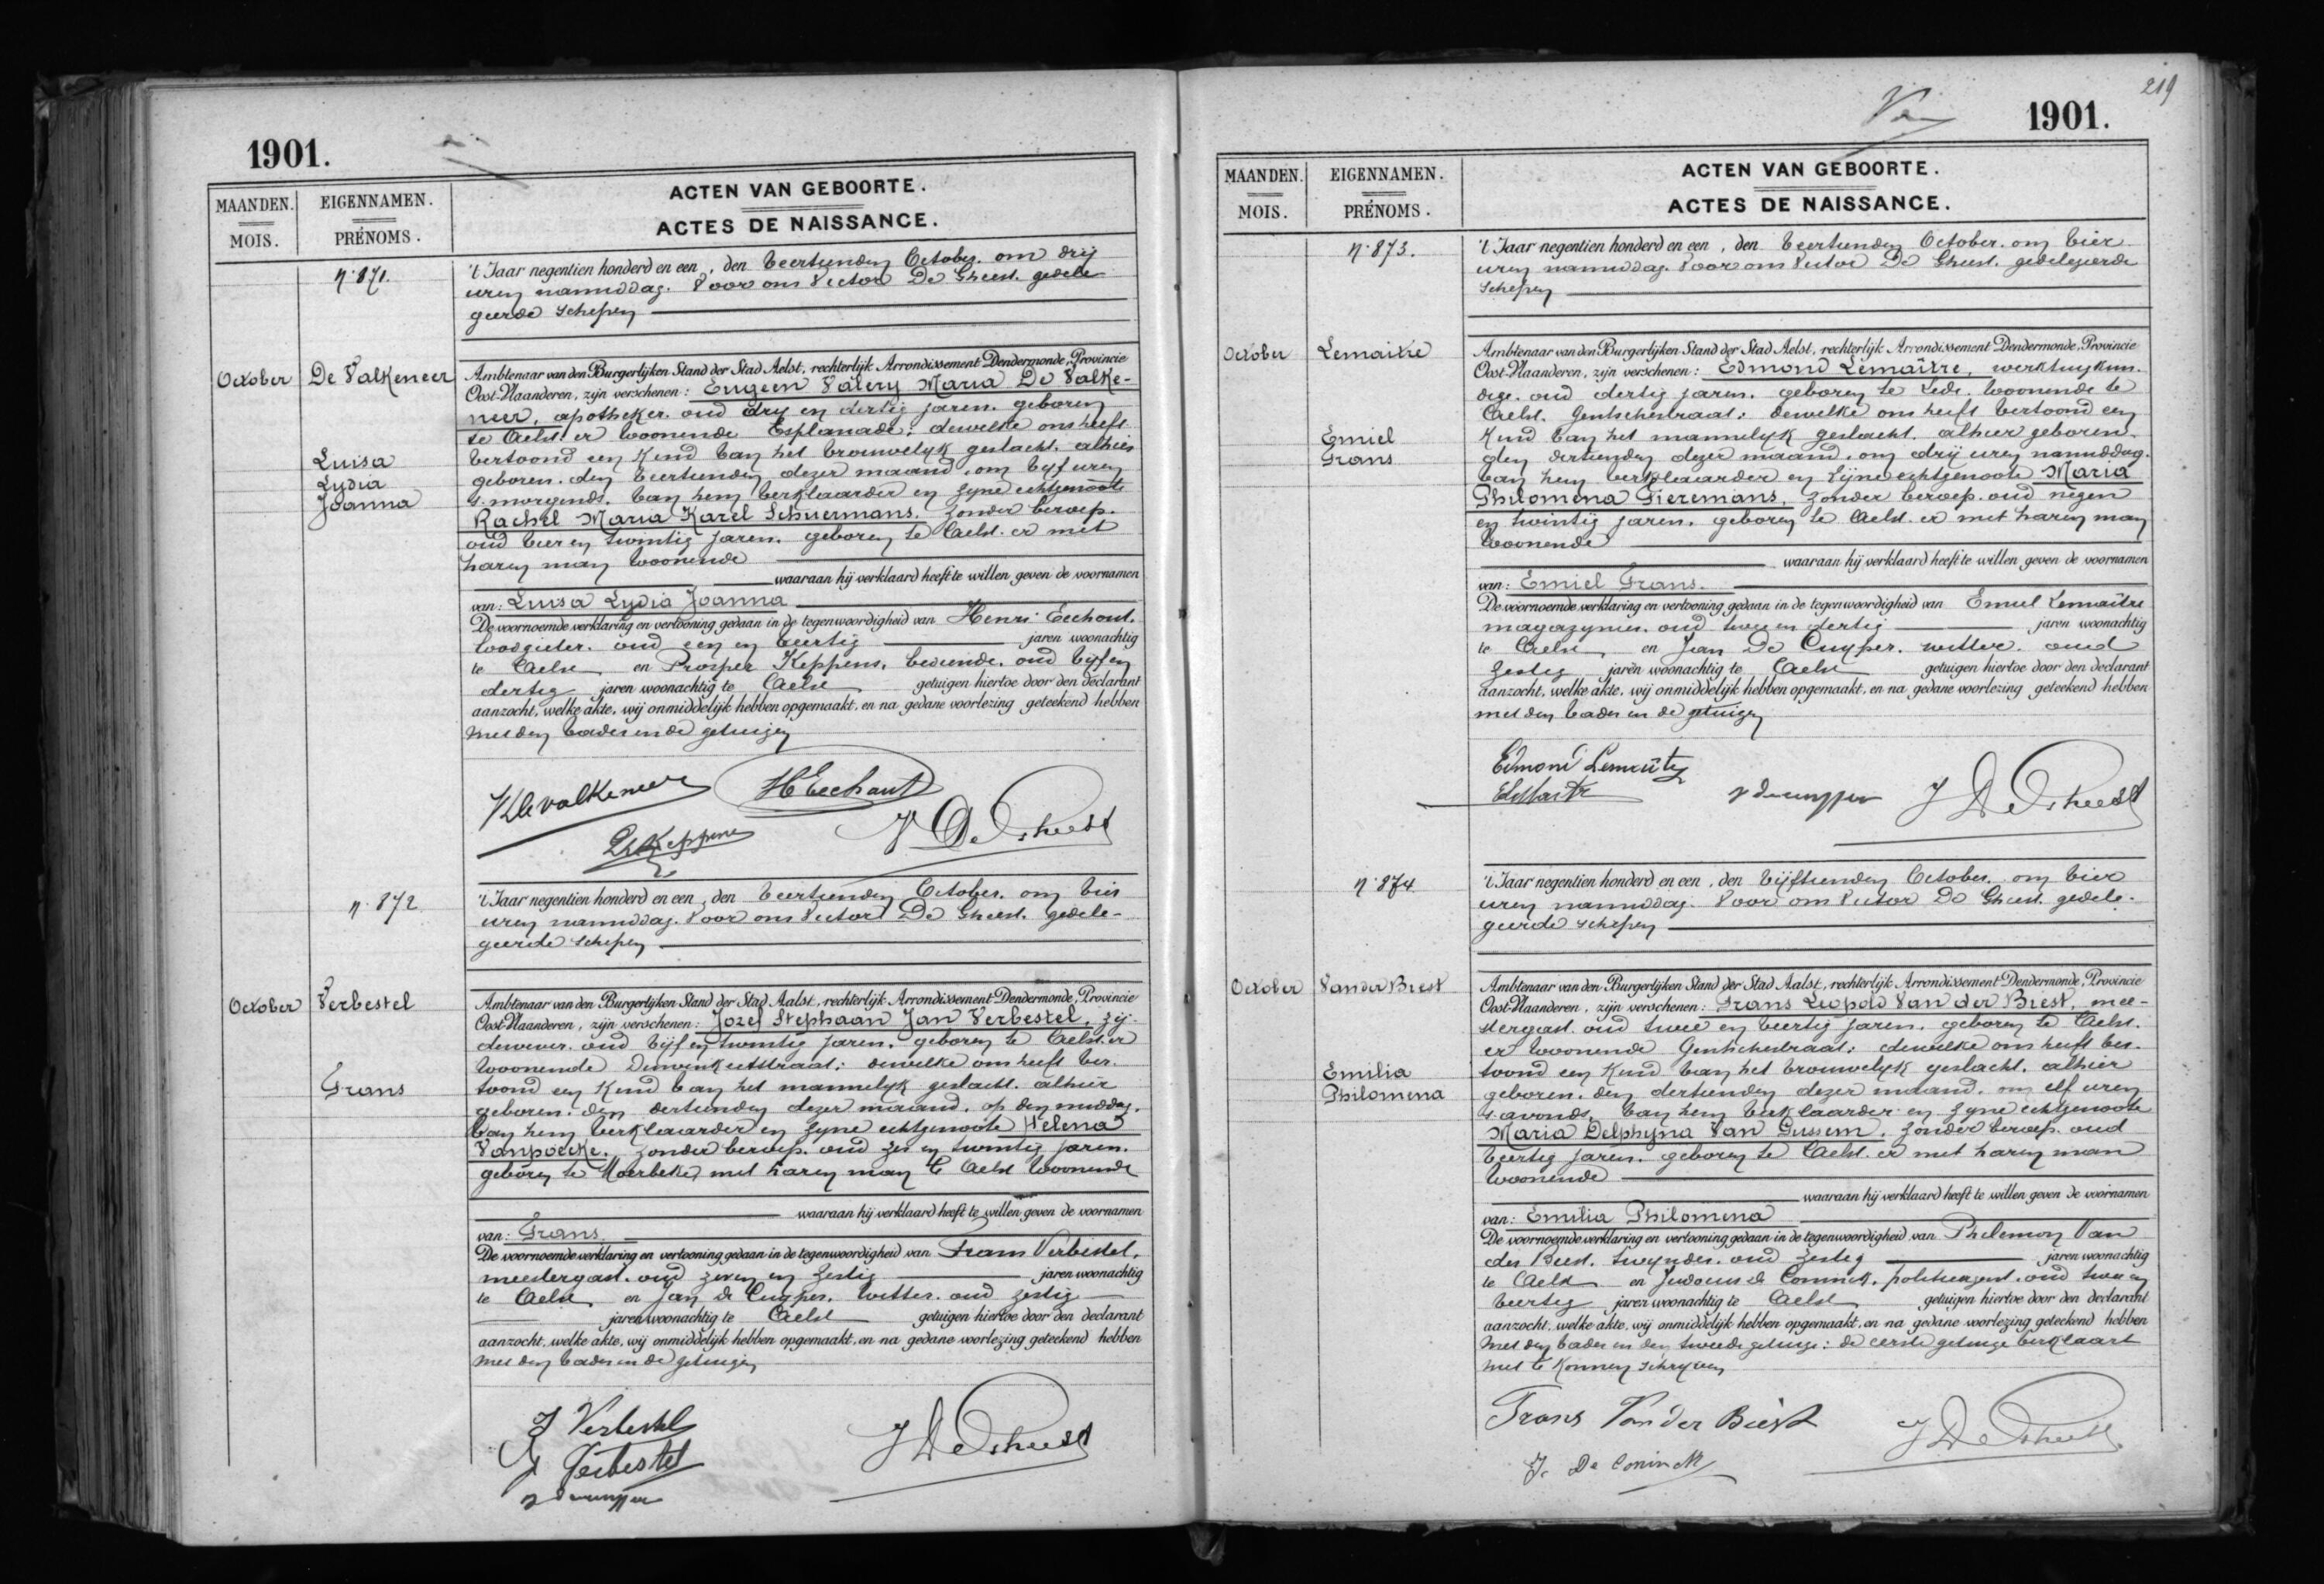 1901.
MAANDEN.
MOIS.
EIGENNAMEN.
PRÉNOMS.
ACTEN VAN GEBOORTE.
ACTES DE NAISSANCE.
N. 871.
't Jaar negentien honderd en een, den veertienden October. om drij
uren namiddag. Voor ons Victor De Gheest. gedele
geerde schepen
October
De Valkeneer
Luisa
Lydia
Joanna
Ambtenaar van den Burgerlijken Stand der Stad Aelst, rechterlijk Arrondissement Dendermonde, Provincie
Oost-Vlaanderen, zijn verschenen: Eugeen Valery Maria De Valke-
neer, apotheker. oud dry en dertig jaren. geboren
te Aelst er woonende Esplanade; dewelke ons heeft
vertoond een kind van het vrouwelyk geslacht. alhier
geboren. den veertienden dezer maand. om vyf uren
's morgends. van hem verklaarder en zyne echtgenoote
Rachel Maria Karel Schuermans. zonder beroep.
oud vier en twintig jaren. geboren te Aelst. er met
haren man woonende
waaraan hij verklaard heeft te willen geven de voornamen
van: Luisa Lydia Joanna
De voornoemde verklaring en vertooning gedaan in de tegenwoordigheid van Henri Eeckout.
loodgieter. oud een en veertig jaren woonachtig
te Aelst en Prosper Keppens, bediende. oud vyf en
dertig jaren woonachtig te Aelst getuigen hiertoe door den declarant
aanzocht, welke akte, wij onmiddelijk hebben opgemaakt, en na gedane voorlezing geteekend hebben
met den vader en de getuigen
V Devalkeneer
H Eeckaut
Keppens
V De Gheest
N. 872
't Jaar negentien honderd en een, den veertienden October. om vier
uren namiddag. Voor ons Victor De Gheest. gedele-
geerde schepen
October
Verbestel
Frans
Ambtenaar van den Burgerlijken Stand der Stad Aalst, rechterlijk Arrondissement Dendermonde, Provincie
Oost-Vlaanderen, zijn verschenen: Jozef Stephaan Jan Verbestel, zij-
dewever. oud vyf en twintig jaren. geboren te Aelst. er
woonende dewelke ons heeft ver-
toond een kind van het mannelyk geslacht. alhier
geboren. den dertienden dezer maand. op den middag.
van hem verklaarder en zyne echtgenoote Helena
Vanpoecke. zonder beroep. oud zes en twintig jaren.
geboren te Moerbeke, met haren man te Aelst woonende
waaraan hij verklaard heeft te willen geven de voornamen
van: Frans.
De voornoemde verklaring en vertooning gedaan in de tegenwoordigheid van Frans Verbestel.
meestergast. oud zeven en zestig jaren woonachtig
te Aelst en Jan De Cuyper. witter. oud zestig
jaren woonachtig te Aelst getuigen hiertoe door den declarant
aanzocht, welke akte, wij onmiddelijk hebben opgemaakt, en na gedane voorlezing geteekend hebben
met den vader en de getuigen
J Verbestel
F Verbestel
J Decuyper
V De Gheest
219
1901.
MAANDEN.
MOIS.
EIGENNAMEN.
PRÉNOMS.
ACTEN VAN GEBOORTE.
ACTES DE NAISSANCE.
N. 873.
't Jaar negentien honderd en een, den veertienden October. om vier
uren namiddag. Voor ons Victor De Gheest. gedelegeerde
schepen
October
Lemaitre
Emiel
Frans
Ambtenaar van den Burgerlijken Stand der Stad Aelst, rechterlijk Arrondissement Dendermonde, Provincie
Oost-Vlaanderen, zijn verschenen: Edmond Lemaître, werktuigkun-
dige. oud dertig jaren. geboren te Lede. woonende te
Aelst. Gentschestraat; dewelke ons heeft vertoond een
kind van het mannelyk geslacht. alhier geboren.
den dertienden dezer maand. om drij uren namiddag.
van hem verklaarder en zijne echtgenoote Maria
Philomena Fieremans. zonder beroep. oud negen
en twintig jaren. geboren te Aelst. er met haren man
woonende
waaraan hij verklaard heeft te willen geven de voornamen
van: Emiel Frans.
De voornoemde verklaring en vertooning gedaan in de tegenwoordigheid van Emiel Lemaître
magazynier. oud twee en dertig jaren woonachtig
te Aelst en Jan De Cuyper. witter. oud
zestig jaren woonachtig te Aelst getuigen hiertoe door den declarant
aanzocht, welke akte, wij onmiddelijk hebben opgemaakt, en na gedane voorlezing geteekend hebben
met den vader en de getuigen
Edmond Lemaître
J Decuyper
V De Gheest
N. 874
't Jaar negentien honderd en een, den vijftienden October. om vier
uren namiddag. Voor ons Victor De Gheest. gedele-
geerde schepen
October
Van der Biest
Emilia
Philomena
Ambtenaar van den Burgerlijken Stand der Stad Aalst, rechterlijk Arrondissement Dendermonde, Provincie
Oost-Vlaanderen, zijn verschenen: Frans Leopold Van der Biest, mee-
stergast. oud twee en veertig jaren. geboren te Aelst.
er woonende Gentschestraat; dewelke ons heeft ver-
toond een kind van het vrouwelyk geslacht. alhier
geboren. den dertienden dezer maand. om elf uren
's avonds. van hem verklaarder en zyne echtgenoote
Maria Delphyna Van Gussem. zonder beroep. oud
veertig jaren. geboren te Aelst. er met haren man
woonende
waaraan hij verklaard heeft te willen geven de voornamen
van: Emilia Philomena
De voornoemde verklaring en vertooning gedaan in de tegenwoordigheid van Philemon Van
der Biest. twynder. oud zestig jaren woonachtig
te Aelst en Judocus De Coninck. politieagent. oud twee en
veertig jaren woonachtig te Aelst getuigen hiertoe door den declarant
aanzocht, welke akte, wij onmiddelijk hebben opgemaakt, en na gedane voorlezing geteekend hebben
met den vader en den tweede getuige: de eerste getuige verklaart
niet te konnen schryven
Frans Van der Biest
J. De Coninck
V De Gheest